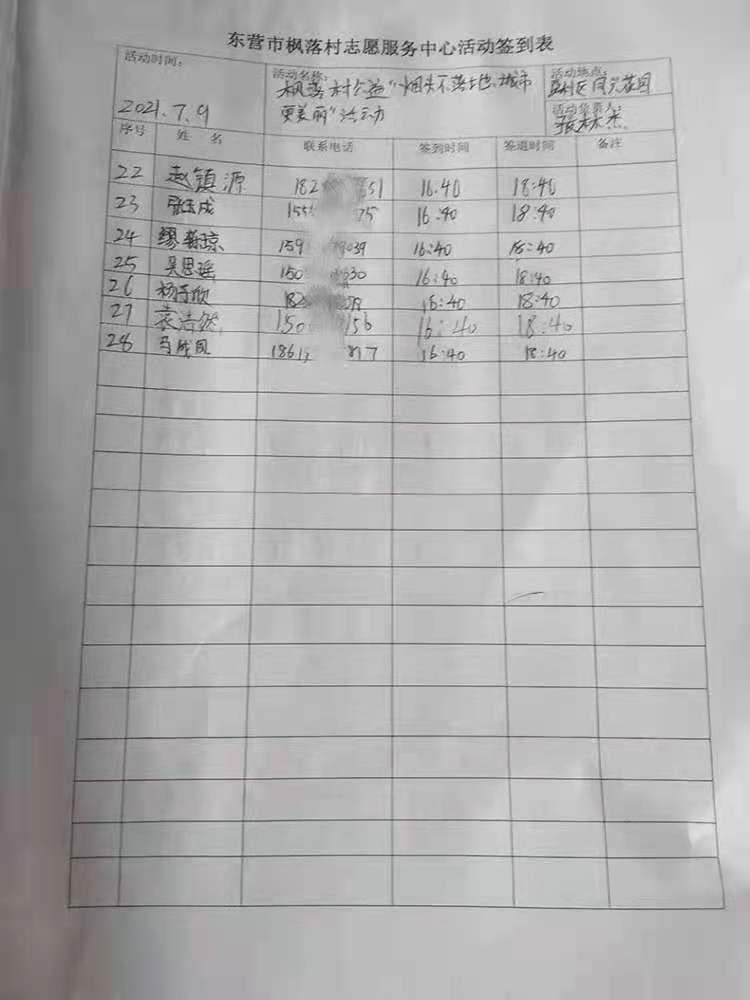 东营市枫落村志愿服务中心活动签到表
活动时间： 活动名称： 活动地点：
2021.7.9 枫落村公益"烟头不落地、城市 区同兴花园
更美丽"活动 活动负责人：
张林杰
序号 姓名 联系电话 签到时间 签退时间 备注
22 赵镇源 182 651 16:40 18:40
23 张玉成 155 75 16:40 18:40
24 缪新琼 159 9039 16:40 18:40
25 吴思瑶 150 630 16:40 18:40
26 杨子欣 182 16:40 18:40
27 袁浩然 150 156 16:40 18:40
28 马成凤 1861 16:40 18:40